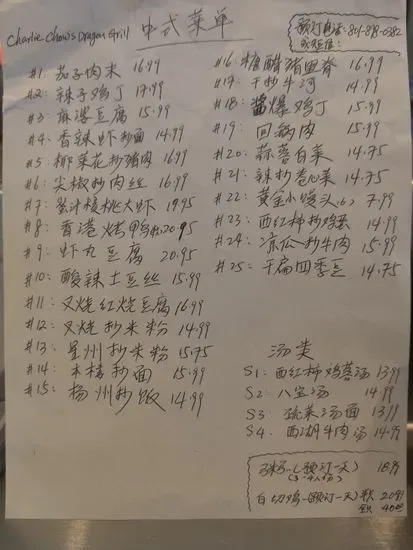 Charlie Chow's Dragon Grill
中式菜单
预订电话: 801-898-0382
或短信:
#1: 茄子肉末 16.99
#2: 辣子鸡丁 17.99
#3: 麻婆豆腐 15.99
#4: 香辣虾抄面 14.99
#5: 椰菜花抄猪肉 16.99
#6: 尖椒抄肉丝 16.99
#7: 蜜汁核桃大虾 19.95
#8: 香港烤鸭 20.95
#9: 虾丸豆腐 20.95
#10: 酸辣土豆丝 15.99
#11: 叉烧红烧豆腐 16.99
#12: 叉烧抄米粉 14.99
#13: 星州抄米粉 15.75
#14: 木樨抄面 15.99
#15: 杨州抄饭 14.99
#16: 糖醋猪里脊 16.99
#17: 干抄牛河 14.99
#18: 酱爆鸡丁 15.99
#19: 回锅肉 15.99
#20: 蒜蓉白菜 14.75
#21: 辣抄卷心菜 14.75
#22: 黄金小馒头(6) 7.99
#23: 西红柿抄鸡蛋 14.99
#24: 凉瓜抄牛肉 15.99
#25: 干扁四季豆 14.75
汤类
S1: 西红柿鸡蛋汤 13.99
S2: 八宝汤 14.99
S3 蔬菜汤面 13.99
S4: 西湖牛肉汤 14.99
(预订一天) 18.95
白切鸡-(预订一天)